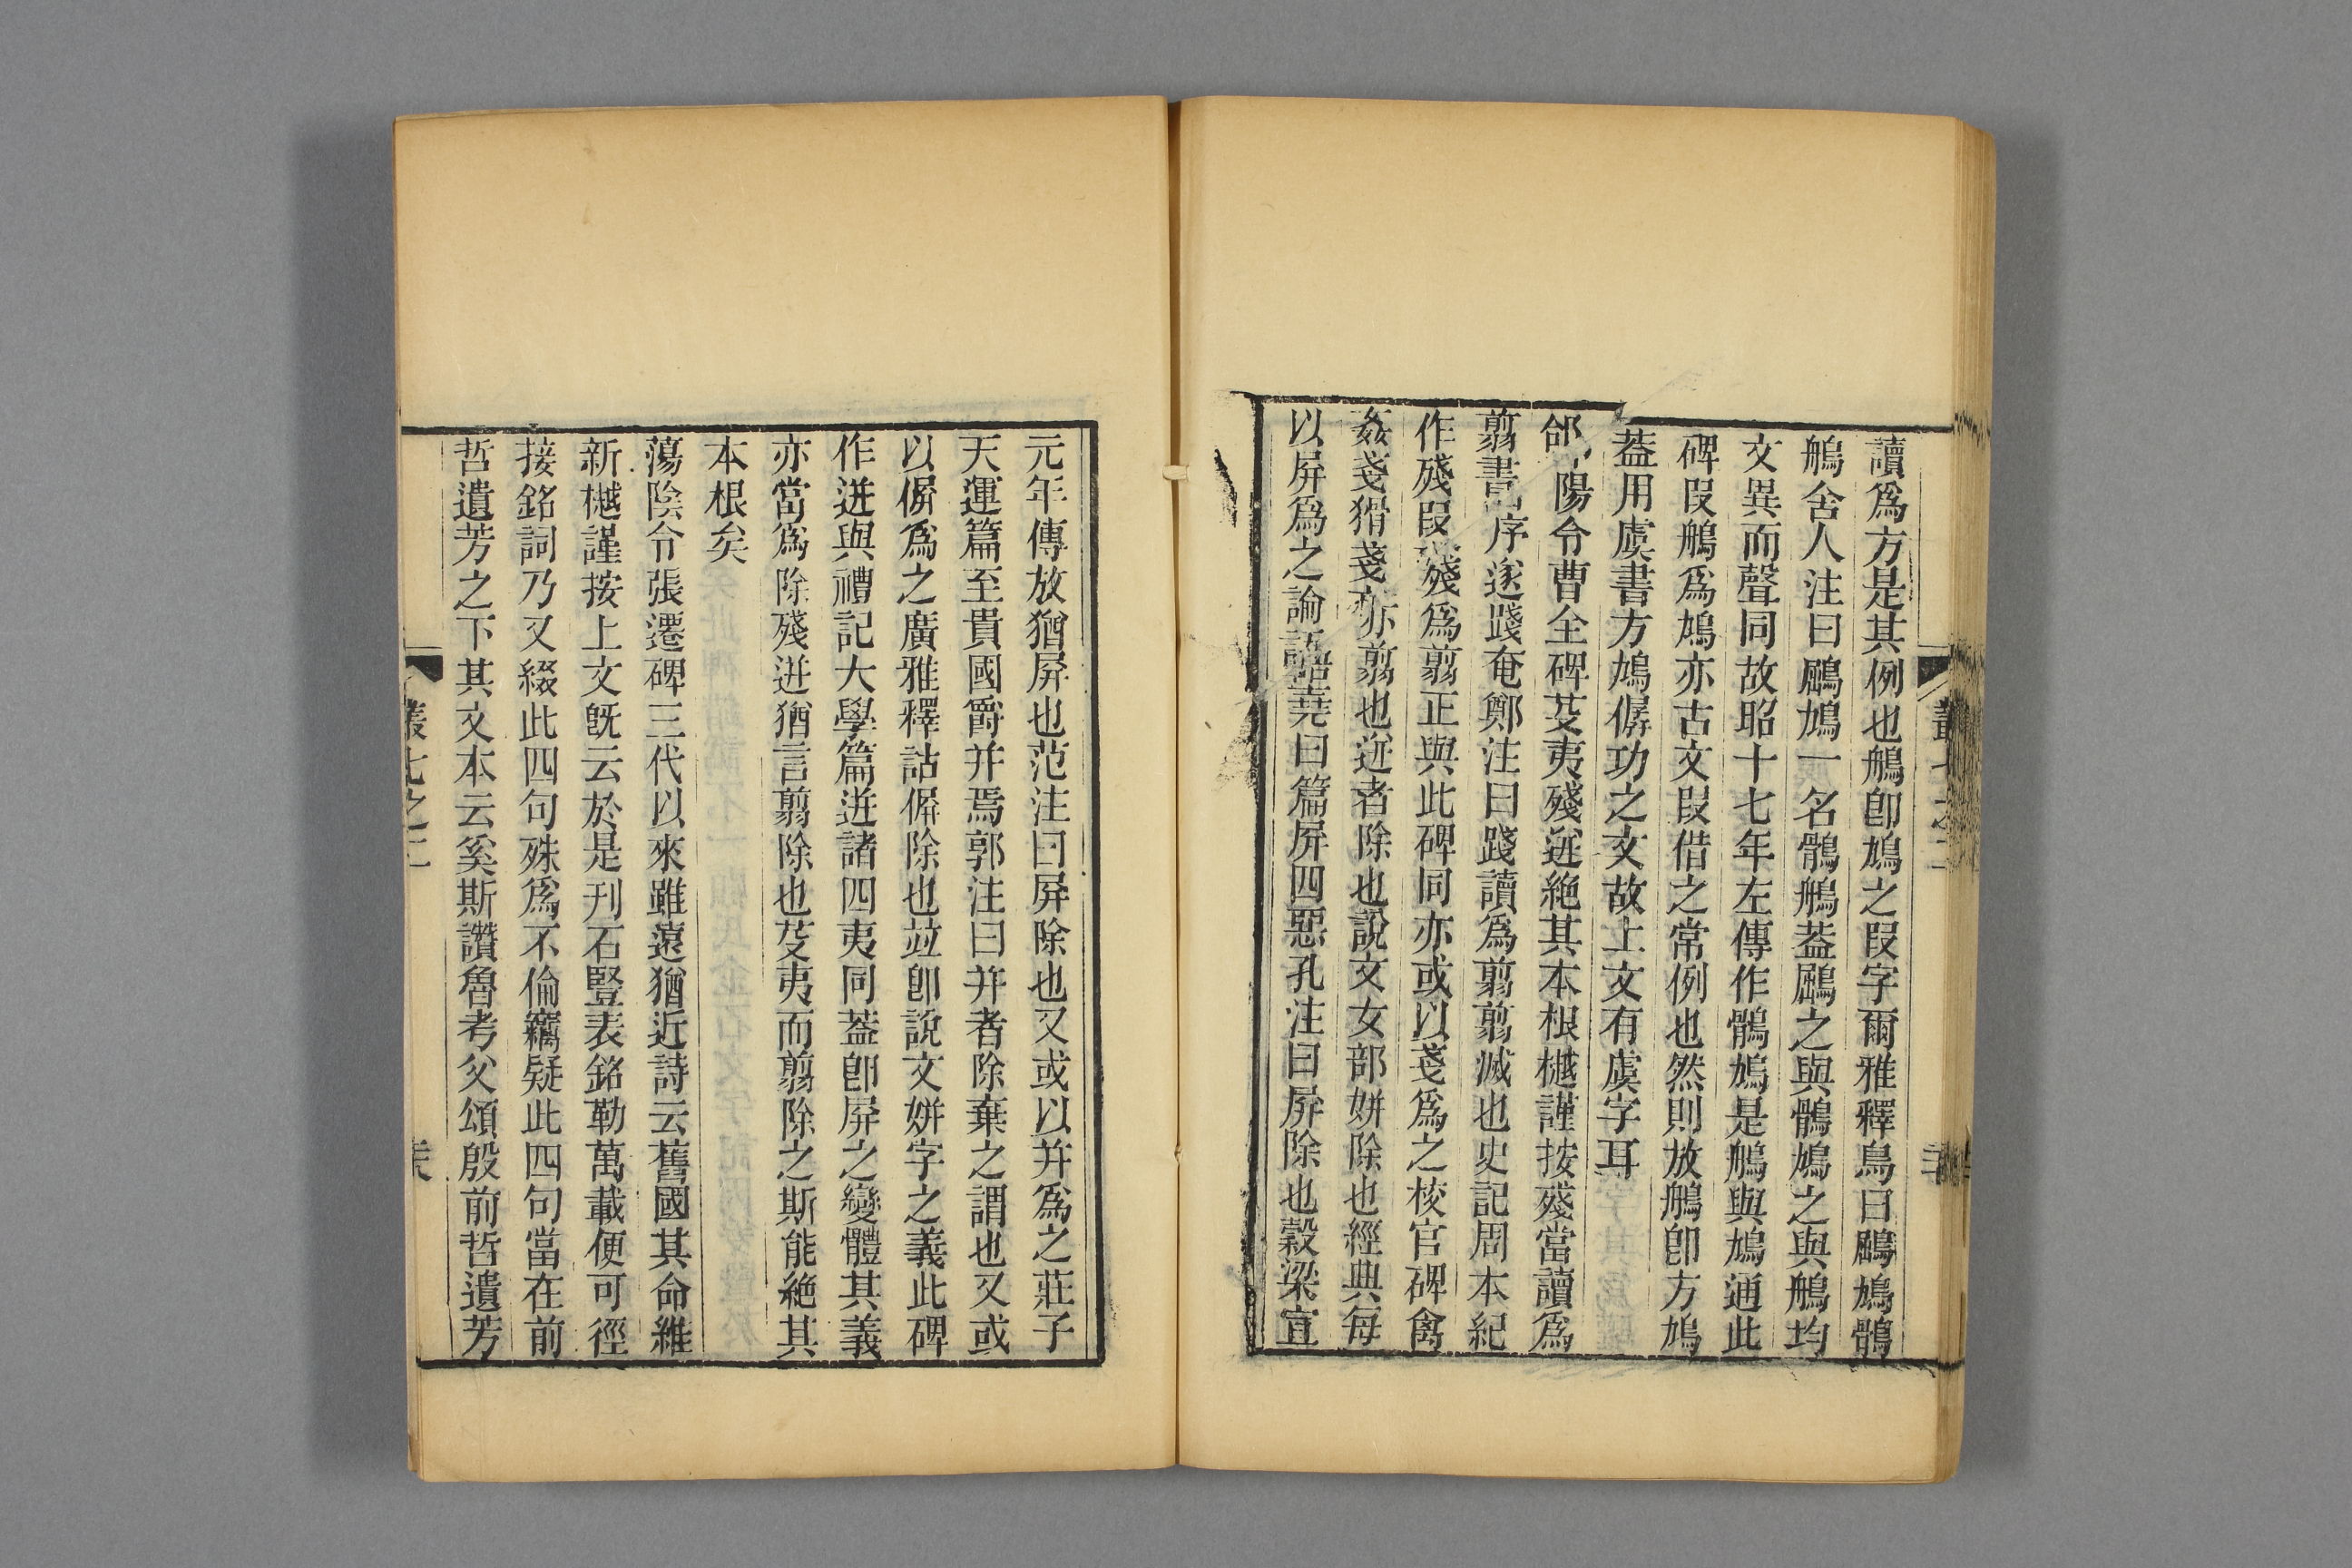 讀爲方是其例也鵃卽鳩之叚字爾雅釋鳥曰鶌鳩鶻
鵃舍人注曰鶌鳩一名鶻鵃葢鶌之與鶻鳩之與鵃均
文異而聲同故昭十七年左傳作鶻鳩是鵃與鳩通此
碑叚鵃爲鳩亦古文叚借之常例也然則放鵃卽方鳩
葢用虞書方鳩僝功之文故上文有虞字耳
郃陽令曹全碑芟夷殘迸絕其本根樾謹按殘當讀爲
翦書序遂踐奄鄭注曰踐讀爲翦翦滅也史記周本紀
作殘叚殘爲翦正與此碑同亦或以戔爲之校官碑禽
姦戔猾戔亦翦也迸者除也說文女部姘除也經典每
以屛爲之論語堯曰篇屛四惡孔注曰屛除也穀梁宣
元年傳放猶屛也范注曰屛除也又或以并爲之莊子
天運篇至貴國爵并焉郭注曰并者除棄之謂也又或
以偋爲之廣雅釋詁偋除也竝卽說文姘字之義此碑
作迸與禮記大學篇迸諸四夷同葢卽屛之變體其義
亦當爲除殘迸猶言翦除也芟夷而翦除之斯能絕其
本根矣
蕩陰令張遷碑三代以來雖遠猶近詩云舊國其命維
新樾謹按上文旣云於是刊石豎表銘勒萬載便可徑
接銘詞乃又綴此四句殊爲不倫竊疑此四句當在前
哲遺芳之下其文本云奚斯讚魯考父頌殷前哲遺芳
叢七之二